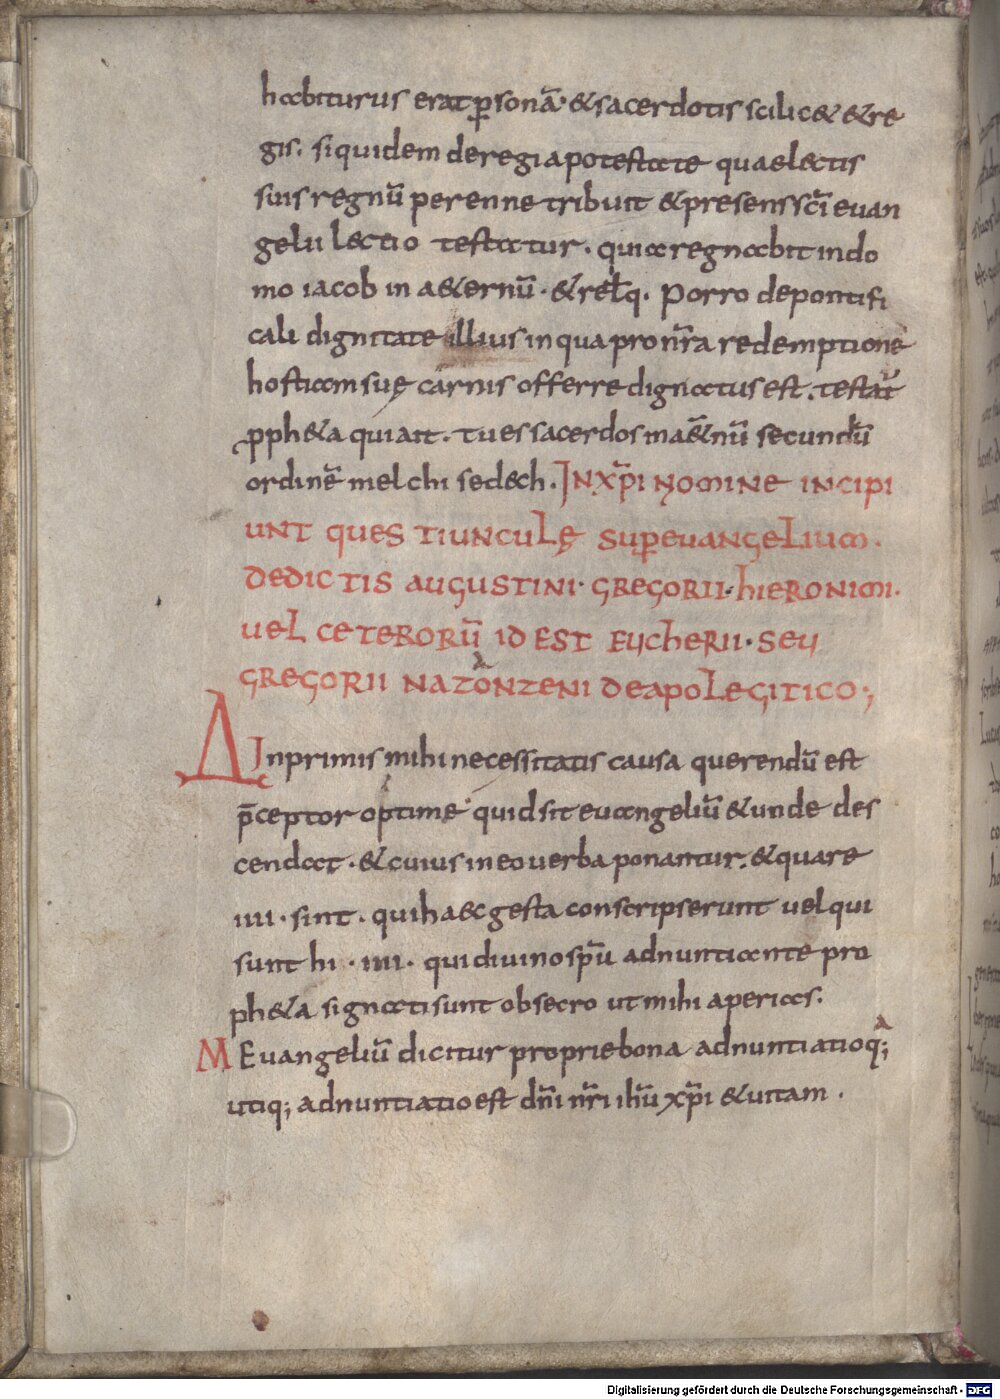 habiturus erat p̱sonā. &sacerdotis scilic& &re
gis. siquidem deregia potestate quaelectis
suis regnū perenne tribuit &presens sc̄i euan
gelii lectio testatur. quia regnabit indo
mo iacob in a&ernū. &rel̄q. Porro depontifi
cali dignitate illius inqua pro nr̄a redemptionē
hostiam suę carnis offerre dignatus est. testat̄
pph&a quiait. tues sacerdos ina&nū secundū
ordinē melchisedech. IN XP̄I NOMINE INCIPI
UNT QUESTIUNCULĘ SUPEREUANGELIUM.
DEDICTIS AUGUSTINI. GREGORII. HIERONIMI.
UEL CETERORŪ ID EST EUCHERII. SEU
GREGORII NAZONZENI DEAPOLEGITICO;
Δ Inprimis mihi necessitatis causa querendū est
p̄ceptor optime quid sit euangeliū &unde des
cendat. &cuius ineo uerba ponantur. &quare
IIII. sint. qui haec gesta conscripserunt uel qui
sunt hi .IIII. qui diuino spū adnuntiante pro
ph&a signati sunt obsecro ut mihi aperias.
M Euangeliū dicitur proprie bona adnuntiatio q;
utiq; adnuntiatio est dn̄i nr̄i ihū xp̄i &uitam.
Digitalisierung gefördert durch die Deutsche Forschungsgemeinschaft - DFG